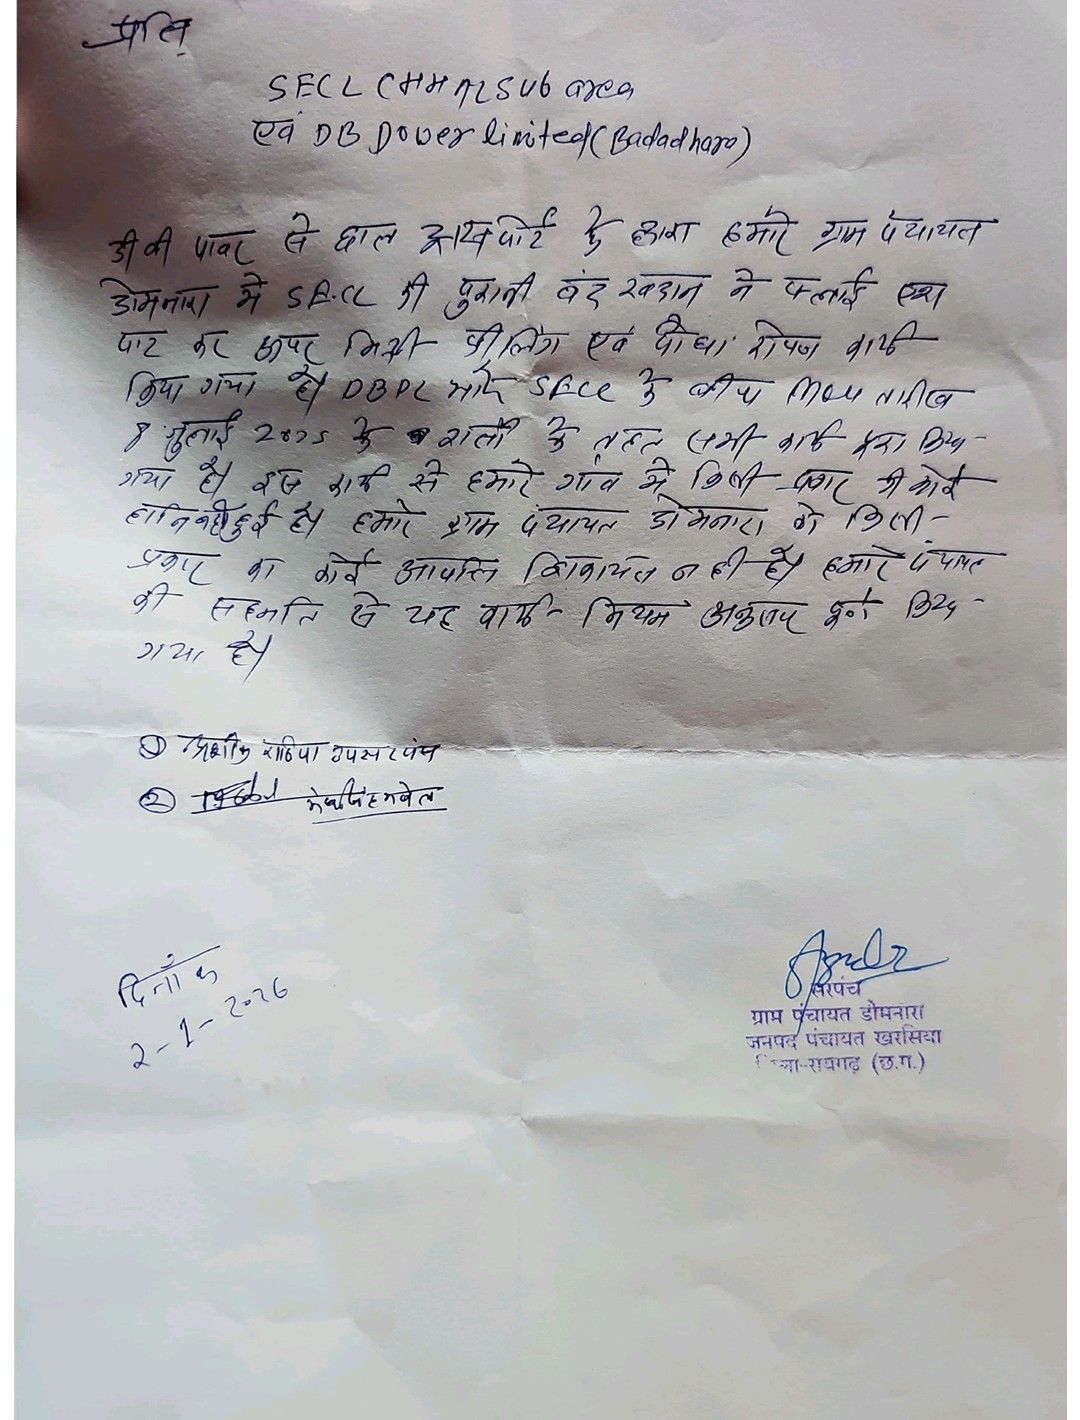 प्रति
SECL CHHAL Sub area
एवं DB Power limited (Badadhara)
डी बी पावर से छाल ट्रांसपोर्ट के द्वारा हमारे ग्राम पंचायत
डोमनारा में SECL की पुरानी बंद खदान में फ्लाई एश
पाट कर ऊपर मिट्टी फीलिंग एवं पौधा रोपण कार्य
किया गया है। DBPL और SECL के बीच MOU तारीख
8 जुलाई 2025 के शर्तो के तहत सभी कार्य पूरा किया
गया है। इस कार्य से हमारे गांव में किसी प्रकार की कोई
हानि नही हुई है। हमारे ग्राम पंचायत डोमनारा को किसी
प्रकार का कोई आपत्ति शिकायत नही है। हमारे पंचायत
की सहमति से यह कार्य नियम अनुसार पूर्ण किया
गया है।
① राठिया उपसरपंच
②
दिनाँक
2-1-2026
सरपंच
ग्राम पंचायत डोमनारा
जनपद पंचायत खरसिया
जिला-रायगढ़ (छ.ग.)